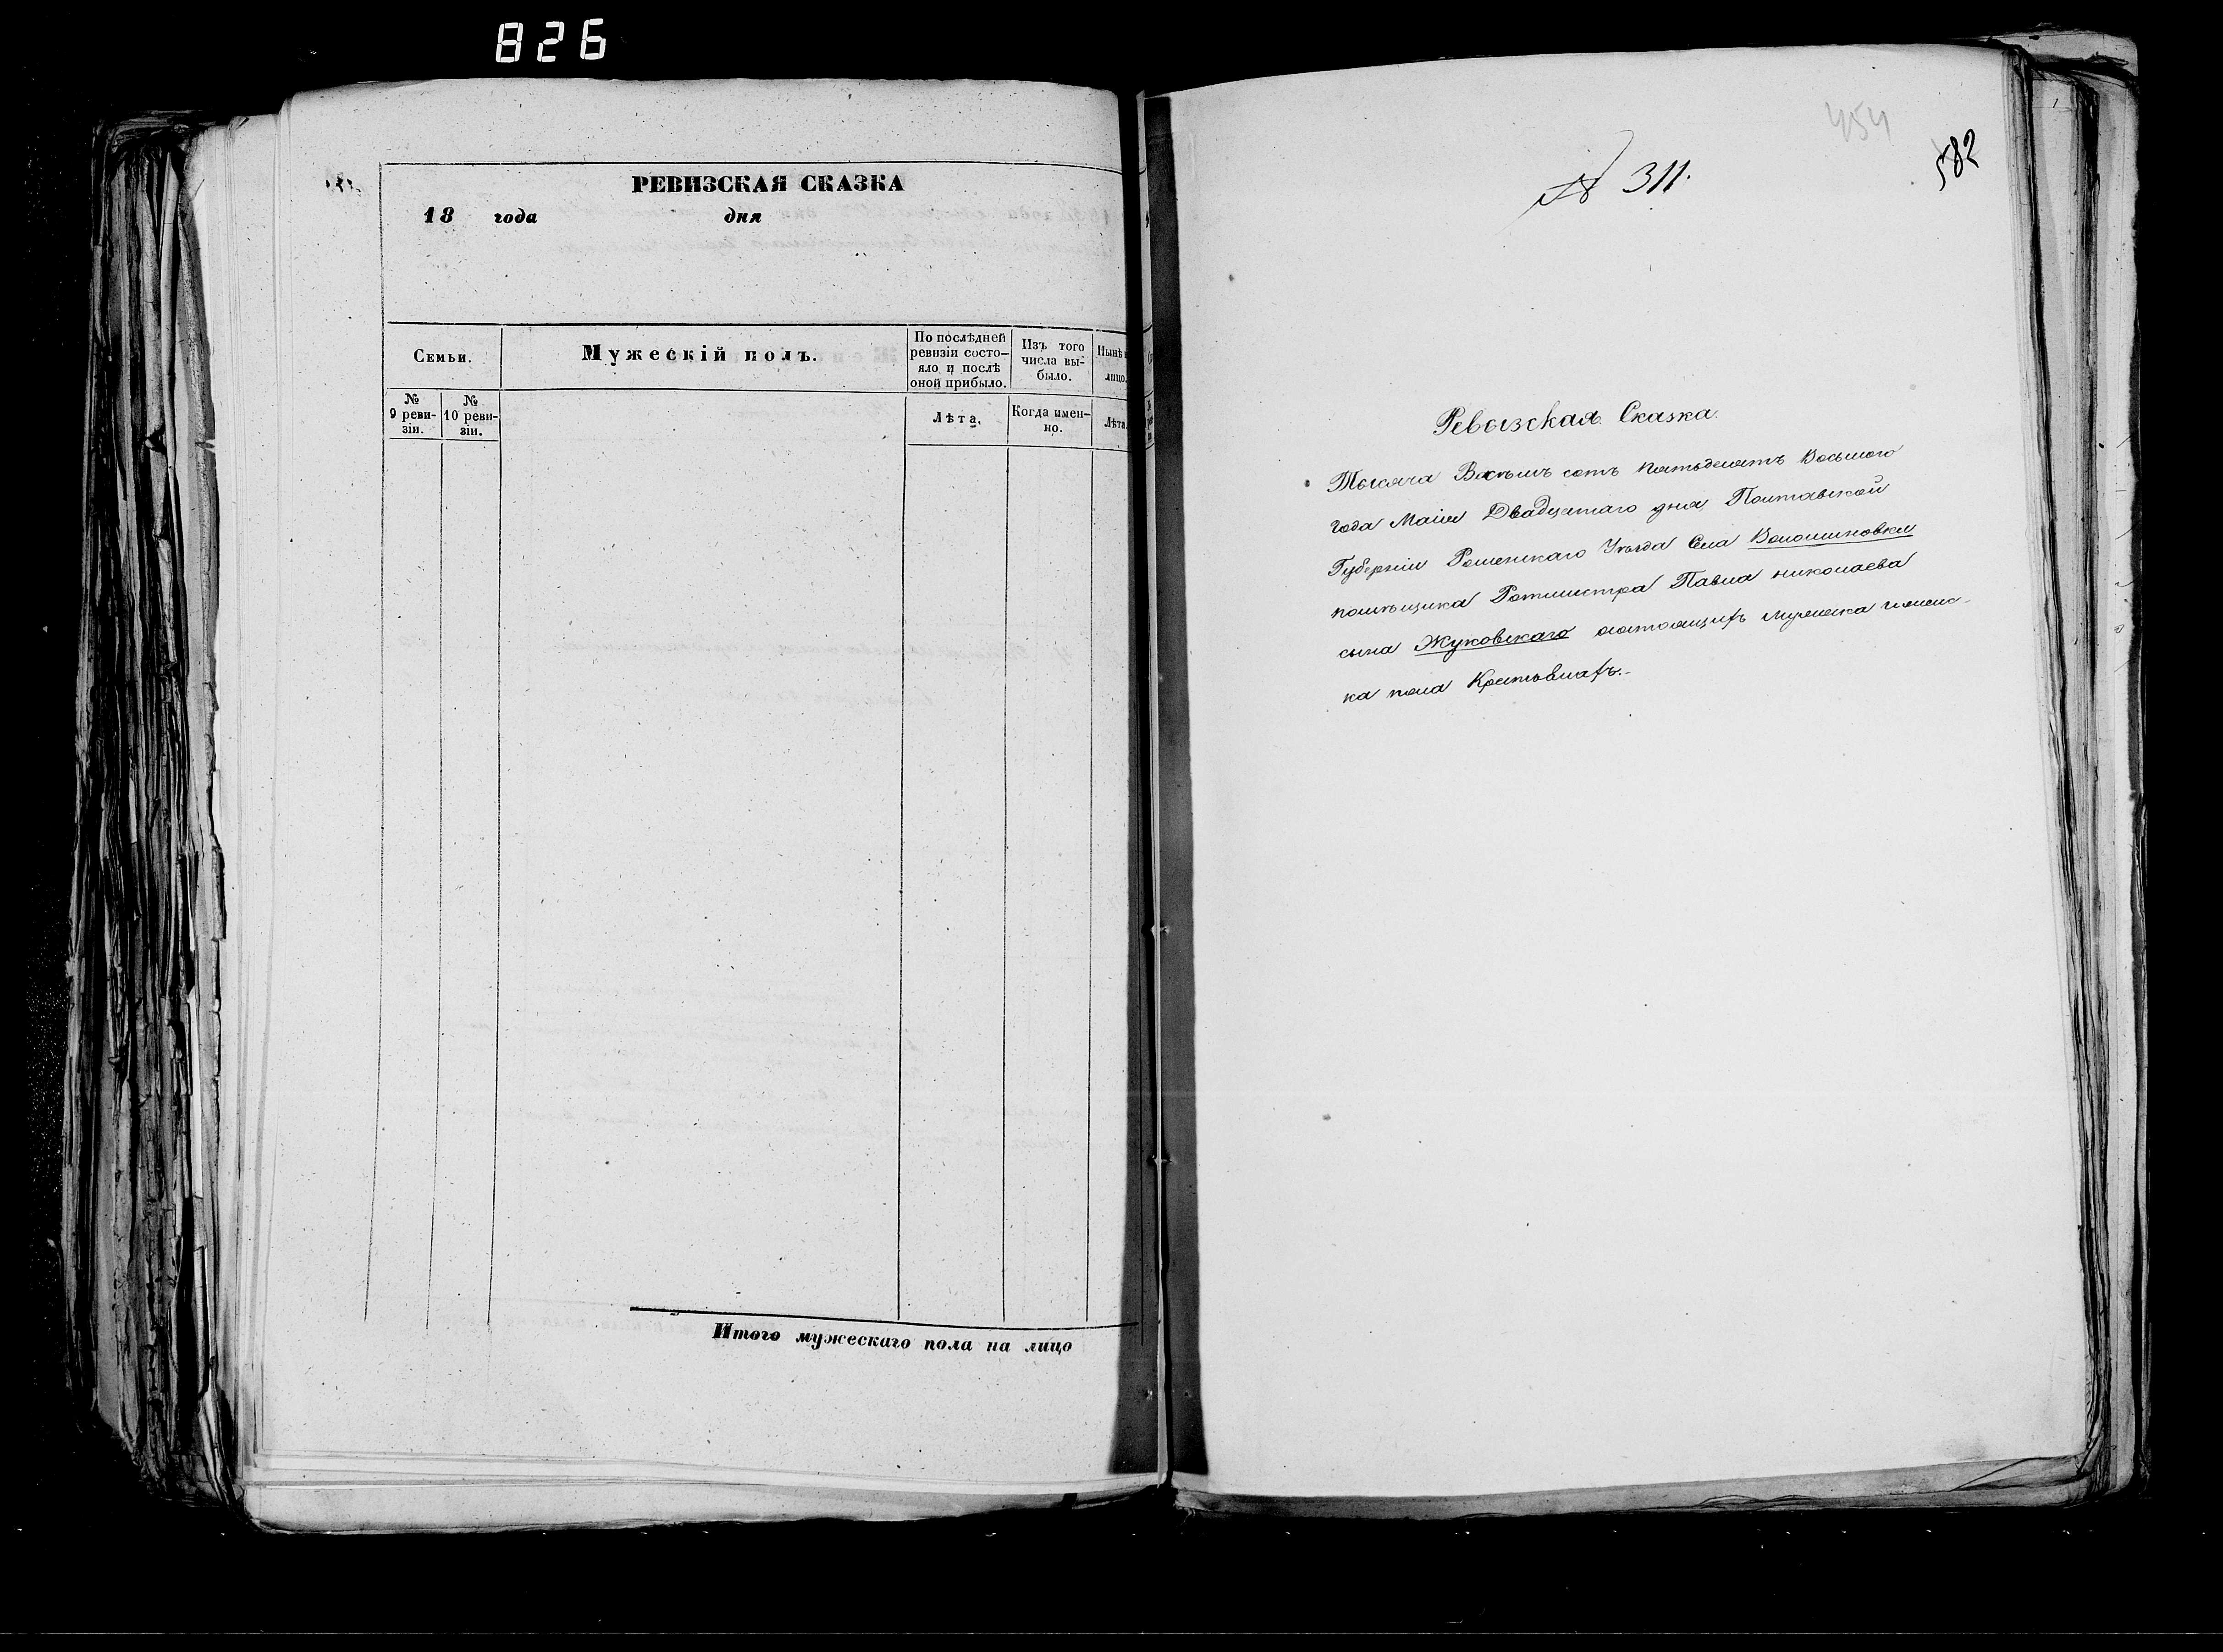 826
РЕВИЗСКАЯ СКАЗКА
18 года дня
Семьи.
Мужескій полъ.
По послѣдней ревизіи состо-
яло и послѣ оной прибыло.
Изъ того числа вы-
было.
Нынѣ
лицо.
№ 9 реви-
зіи.
№ 10 реви-
зіи.
Лѣта.
Когда имен-
но.
Лѣта.
Итого мужескаго пола на лицо
454
582
№ 311.
Ревызская Сказка.
Тысяча Восѣмъ сотъ пятьдесятъ Восьмого
года Маія Двадцатаго дня Полтавской
Губерніи Роменскаго Уѣзда Села Волошиновки
помѣщика Ротмистра Павла николаева
сына Жуковскаго состоящихъ мужеска и женс-
ка пола Крестьянахъ.-